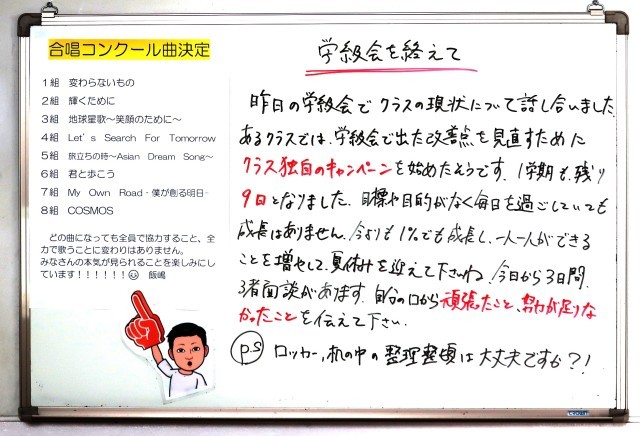 合唱コンクール曲決定
1組　変わらないもの
2組　輝くために
3組　地球星歌～笑顔のために～
4組　Let's Search For Tomorrow
5組　旅立ちの時～Asian Dream Song～
6組　君と歩こう
7組　My Own Road-僕が創る明日-
8組　COSMOS
どの曲になっても全員で協力すること、全
力で歌うことに変わりはありません。
みなさんの本気が見られることを楽しみにし
ています！！！！！！☺　飯嶋
学級会を終えて
昨日の学級会でクラスの現状について話し合いました。
あるクラスでは、学級会で出た改善点を見直すために
クラス独自のキャンペーンを始めたそうです。1学期も、残り
9日となりました。目標や目的がなく毎日を過ごしていても
成長はありません。今よりも1%でも成長し、一人一人ができる
ことを増やして、夏休みを迎えて下さいね。今日から3日間、
3者面談があります。自分の口から頑張たこと、努力が足りな
かったことを伝えて下さい。
P.S ロッカー、机の中の整理整頓は大丈夫ですか?!